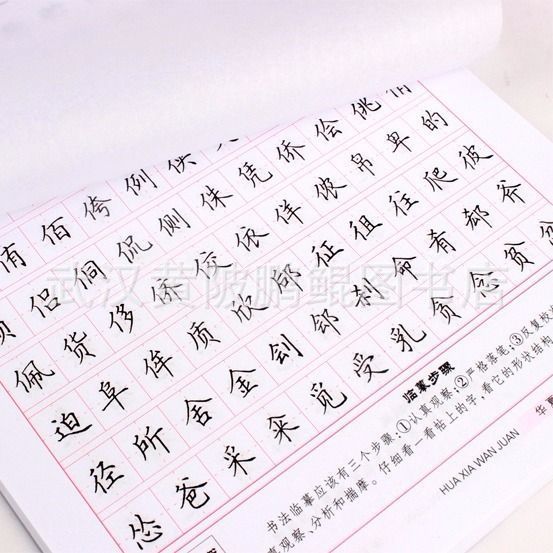 侑佰侉例侠
侣侗侃侧侏凭侨侩佻
佩货侈侪佼依佯侬帛卑的
迫阜侔质欣征徂往爬彼
径所舍金刽郐刹命肴郄斧
怂爸采觅受乳贪念贫
临摹步骤
书法临摹应该有三个步骤:①认真观察;②严格落笔;③反复校
真观察、分析和揣摩。仔细看一看帖上的字,看它的形状结构
HUA XIA WAN JUAN
华夏
武汉黄陂鹏鲲图书店